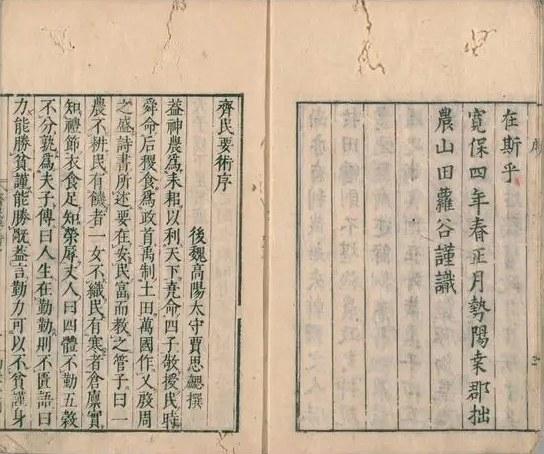 在斯乎
寬保四年春正月勢陽桒郡拙
農山田蘿谷謹識
齊民要術序
後魏高陽太守賈思勰撰
葢神農爲耒耜以利天下堯命四子敬授民時
舜命后稷食爲政首禹制土田萬國作乂殷周
之盛詩書所述要在安民富而教之管子曰一
農不耕民有饑者一女不織民有寒者倉廩實
知禮節衣食足知榮辱丈人曰四體不勤五穀
不分孰爲夫子傳曰人生在勤勤則不匱語曰
力能勝貧謹能勝旤葢言勤力可以不貧謹身